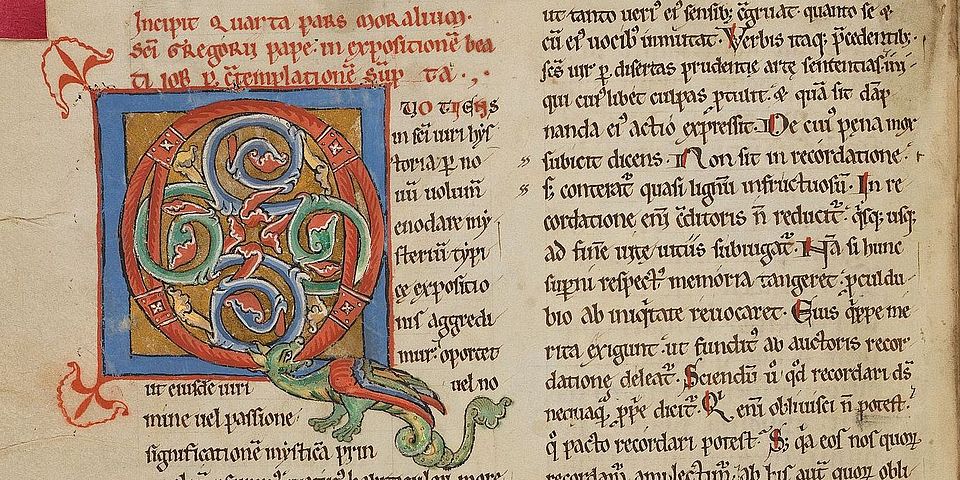 Incipit Quarta pars Moralium.
Sc̄i Gregorii pape. in expositionē bea
ti iob p̱ cōtemplationē sūp ta.
QUOTIENS
in sc̄i uiri hys
toria p̱ no
uū uolum̄
enodare my
steriū typi
ce expositio
nis aggredi
mur. oportet
ut eiusdē uiri uel no
mine uel passione
significationē mysticā prin
ut tanto ueri᷒ ei᷒ sensib; cōgruat. quanto se &
cū ei᷒ uocib᷒ inmutat. Verbis itaq; p̄cedentib;
sc̄s uir
qui cui᷒libet culpas ptulit. & quā sit dāp
nanda ei᷒ actio expressit. De cui᷒ pena mox
subicit dicens. Non sit in recordatione.
s; conterat᷑ quasi lignū infructuosū. In re
cordatione eni cōditoris n̄ reducit᷑. q̇sq; usq;
ad finē uite uitiis subiugat᷑. Nā si hunc
sup̱ni respect᷒ memoria tangeret. p̱culdu
bio ab iniq̇tate reuocaret. Eius q̇ppe me
rita exigunt. ut fundit᷒ ab auctoris recor
datione deleat᷑. Sciendū ů qd̄ recordari ds̄
nequaq̄ p̱p̱e dicit᷑. Q̇ eni obliuisci n̄ potest.
q̊ pacto recordari potest. S; q̇a eos nos quoꝝ
recordam᷑ amplectim᷑. ab his aut̄ quoꝝ obli